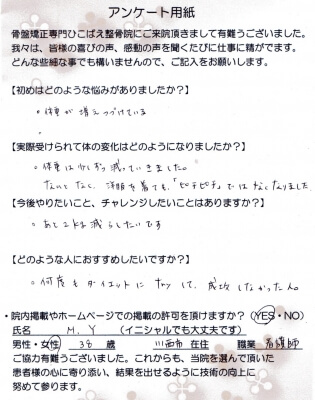 アンケート用紙
骨盤矯正専門ひこばえ整骨院にご来院頂きまして有難うございました。
我々は、皆様の喜びの声、感動の声を聞くたびに仕事に精がでます。
どんな些細な事でも構いませんので、ご記入をお願いします。
【初めはどのような悩みがありましたか？】
・体重が増えつづけている
・
【実際受けられて体の変化はどのようになりましたか？】
・体重は少しずつ減っていきました。
なんとなく、洋服を着ても、「ピチピチ」ではなくなりました
【今後やりたいこと、チャレンジしたいことはありますか？】
・あと2kg減らしたいです
【どのような人におすすめしたいですか？】
・何度もダイエットにトライして、成功しなかった人。
・院内掲載やホームページでの掲載の許可を頂けますか？（YES・NO）
氏名 M.Y （イニシャルでも大丈夫です）
男性・女性 38 歳 川西市 在住 職業 看護師
ご協力有難うございました。これからも、当院を選んで頂いた
患者様の心に寄り添い、結果を出せるように技術の向上に
努めて参ります。